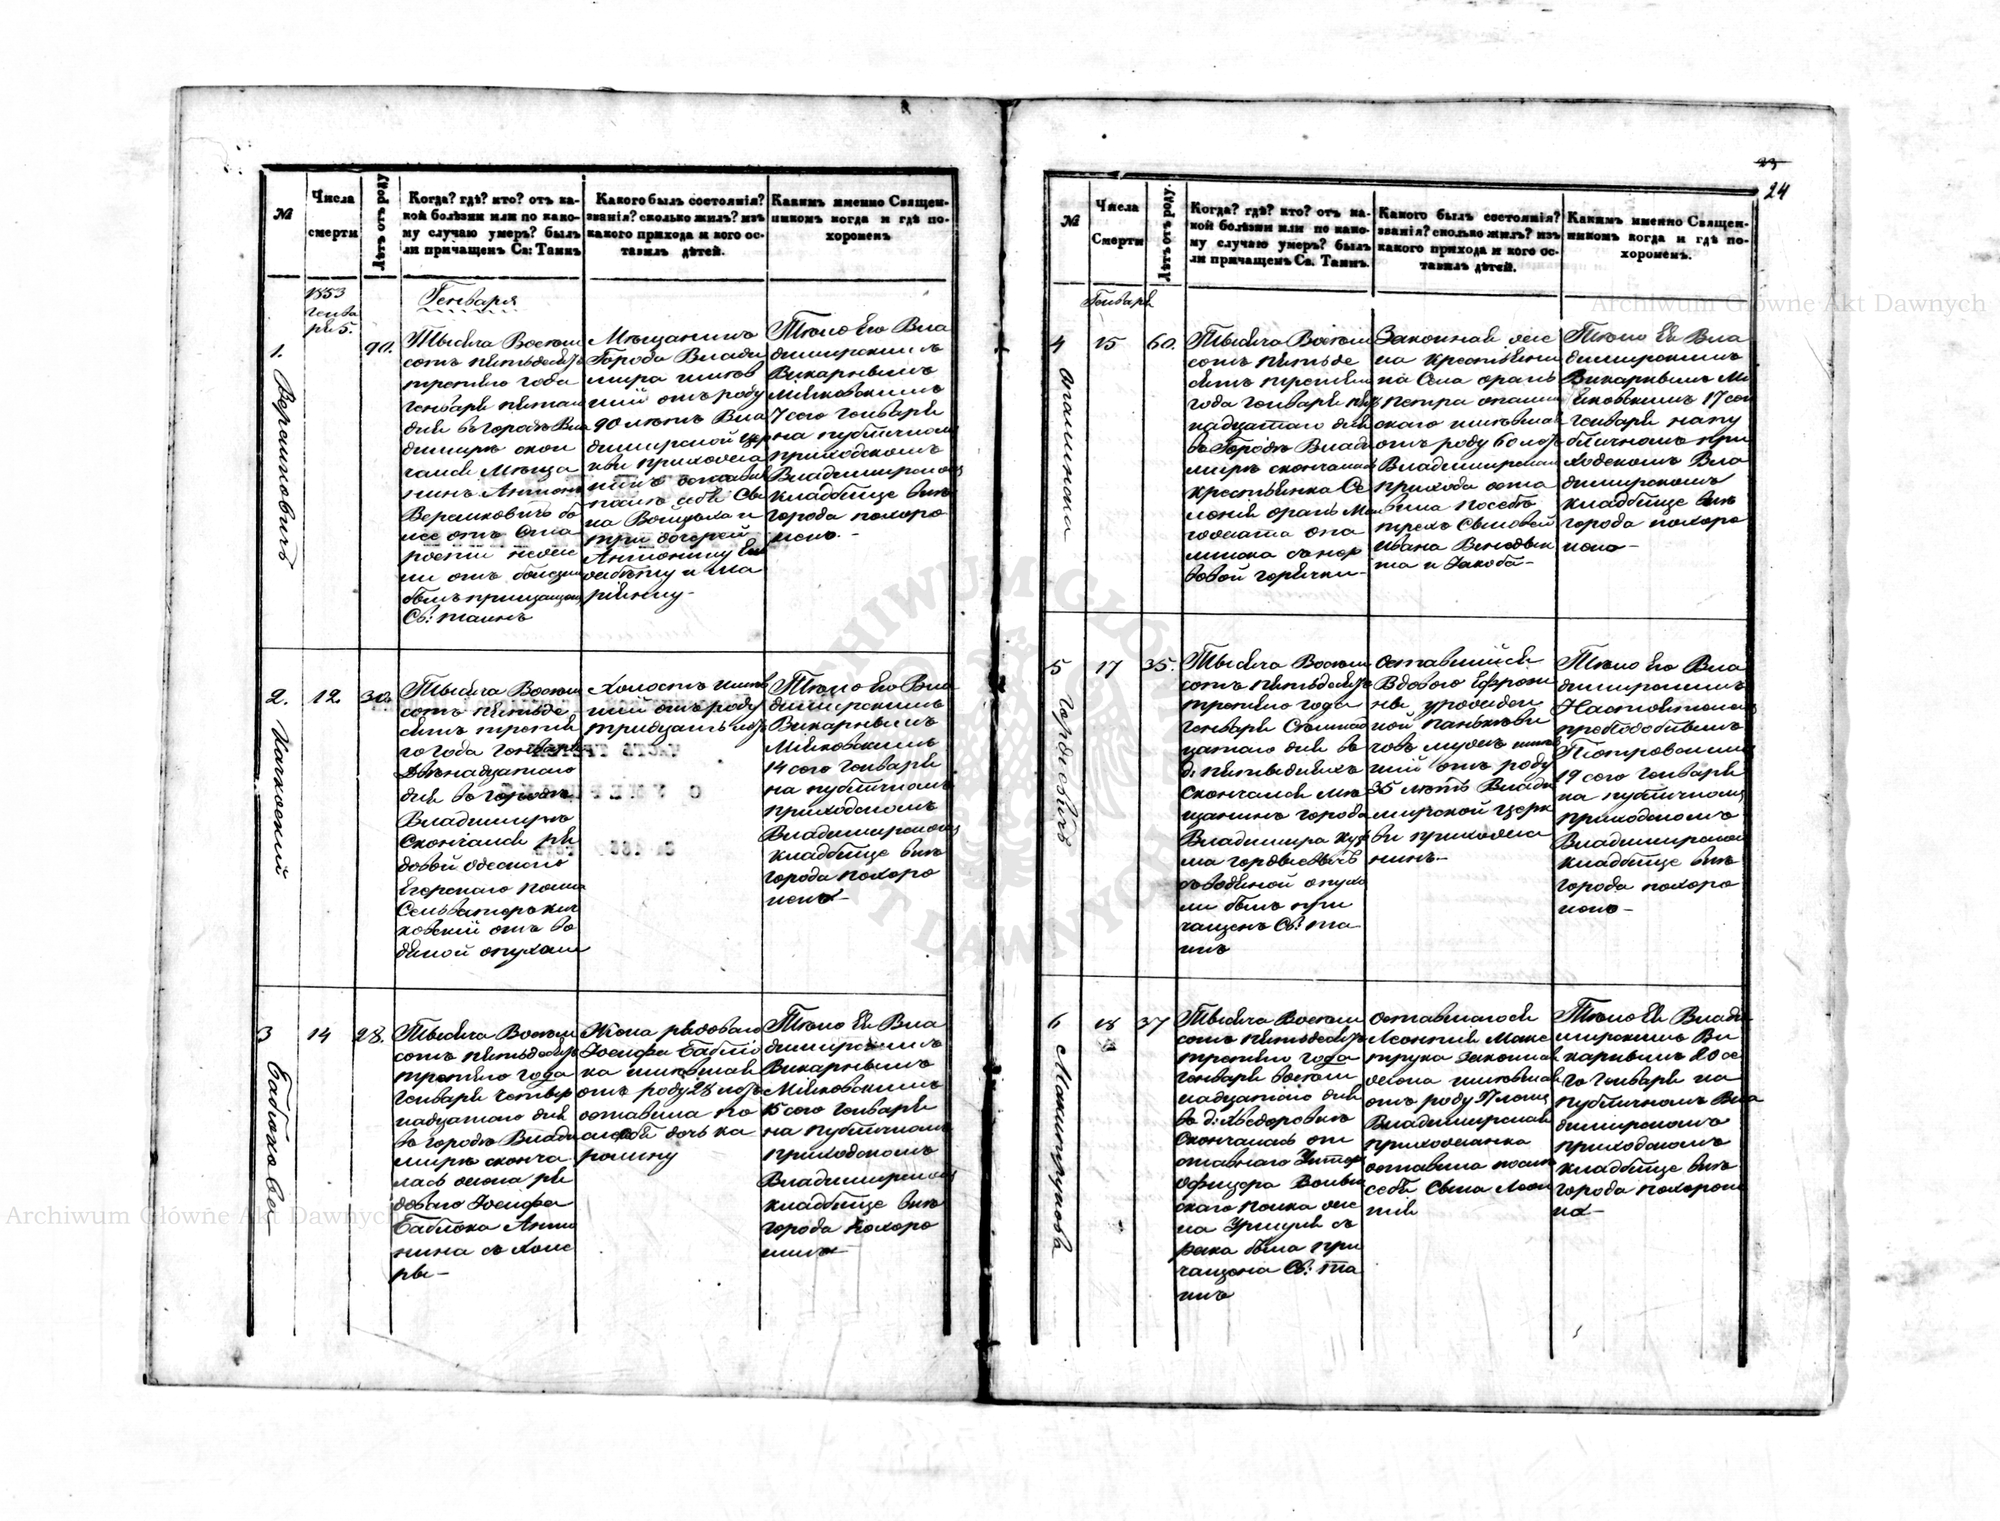 №
Числа
смерти
Лѣтъ отъ роду
Когда? гдѣ? кто? отъ ка-
кой болѣзни или по како-
му случаю умеръ? былъ
ли причащенъ Св: Таинъ
Какого былъ состоянія?
званія? сколько жилъ? изъ
какого прихода и кого ос-
тавилъ дѣтей.
Какимъ именно Священ-
никомъ когда и гдѣ по-
хороненъ
1853
генва
ря 5.
Генваря
1.
Веромковичъ
90.
Тысяча Восем
сотъ пятьдесятъ
третьяго года
Генваря пятаго
дня въ городѣ Вла
димирѣ скон
чался Мѣща
нинъ Антонъ
Веремковичъ бо
лее отъ Ста
рости неже
ли отъ болезни
былъ прищащенъ
Св: таинъ
Мѣщанинъ
Города Влади
мира имев
шій отъ роду
90 лѣтъ Вла
димирской Цер
кви прихожа
нинъ оставив
на Войцѣха и
три дочерей
Антонину Ели
савѣту и Ма
ріянну-
Тѣло Его Вла
димирскимъ
Викарнымъ
Мѣйковскимъ
7 сего Генваря
на публичномъ
приходскомъ
Владимирскомъ
кладбище внѣ
города похоро
нено.-
2.
Качковский
12.
30.
Тысяча Восем
сотъ пятьде
сятъ третья
го года Генваря
Двѣнадцатаго
дня въ городѣ
Владимирѣ
Скончался ря
довой Одесского
Егерскаго полка
Сельвестръ Кач
ковскій отъ во
дяной опухоли
Холостъ имев
шій отъ роду
тридцать лѣтъ
Тѣло Его Вла
димирскимъ
Викарнымъ
Мѣйковскимъ
14 сего Генваря
на публичномъ
приходскомъ
Владимирскомъ
кладбище внѣ
города похоро
нено-
3
Баблюкова
14
28.
Тысяча Восем
сотъ пятьдесятъ
третьяго года
Генваря четвер
надцатаго дня
въ городѣ Влади
мирѣ сконча
лась жена ря
доваго Іосифа
Баблюка Анто
нина съ холе
ры-
Жена рядоваго
Іосифа Баблю
ка имевшая
отъ роду 28 лѣтъ
оставила по
себѣ дочь Ка
ролину
Тѣло Ея Вла
димирскимъ
Викарнымъ
Мѣйковскимъ
15 сего Генваря
на публичномъ
приходскомъ
Владимирскомъ
кладбище внѣ
города похоро
нено-
23
24
№
Числа
Смерти
Лѣтъ отъ роду.
Когда? гдѣ? кто? отъ ка-
кой болѣзни или по како-
му случаю умеръ? былъ
ли причащенъ Св. Таинъ.
Какого былъ состоянія?
званія? сколько жилъ? изъ
какого прихода и кого ос-
тавилъ дѣтей.
Какимъ именно Священ-
никомъ когда и гдѣ по-
хороненъ.
Генваря
4
15
60.
Тысяча Восем
сотъ пятьде
сятъ третьяго
года Генваря пят
надцатаго дня
въ Городѣ Влади
мирѣ скончалась
крестьянка Се
съ нер
вовой горячки-
Законная же
на крестьяни
на Села
Петра
скаго имевшая
отъ роду 60 лѣтъ
Владимирскаго
прихода оста
вила по себѣ
трехъ Сыновей
Ивана Венедик
та и Якова-
Тѣло Ея Вла
димирскимъ
Викарнымъ Мѣ
йковскимъ 17 сего
Генваря на пу
бличномъ при
ходскомъ Вла
димирскомъ
кладбище внѣ
города похоро
нено-
5
Гордіевичъ
17
35.
Тысяча Восем
сотъ пятьдесятъ
третьяго года
Генваря Семнад
цатаго дня въ
д: Пятыдняхъ
Скончался мѣ
щанинъ города
Владимира
ма Гордіевичъ
съ водяной опухо
ли былъ при
чащенъ Св: Та
инъ
Оставшійся
Вдовою Ефрози
ны урожден
ной Паньксви
човъ мужъ имев
шій отъ роду
35 лѣтъ Влади
мирской Церк
ви прихожа
нинъ-
Тѣло Его Вла
димирскимъ
Настоятелемъ
преподобнымъ
Піотровскимъ
19 сего Генваря
на публичномъ
приходскомъ
Владимирскомъ
кладбище внѣ
города похоро
нено-
6
Макитрукова
18
37
Тысяча Восем
сотъ пятьдесятъ
третьяго года
Генваря восем
надцатаго дня
въ д: Хведоровкѣ
Скончалась от
ставнаго Унтер
офицера Волын
скаго полка же
на Урсула съ
рака была при
чащена Св: Та
инъ
Оставшагося
Леонтія Маке
трука Законная
жена имевшая
отъ роду 37 лѣтъ
Владимирская
прихожанка
оставила после
себя Сына Леон
тія
Тѣло Ея Влади
мирскимъ Ви
карнымъ 20 се
го Генваря на
публичномъ Вла
димирскомъ
приходскомъ
кладбище внѣ
города похороне
но-
Archiwum Główne Akt Dawnych
Archiwum Główne Akt Dawnych
ARCHIWUM GŁÓWNE AKT DAWNYCH